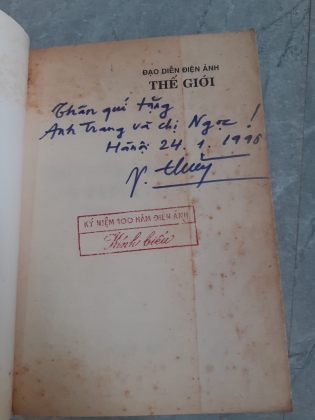 ĐẠO DIỄN ĐIỆN ẢNH
THẾ GIỚI
Thân quí tặng
Anh Trang và chị Ngọc!
Hà nội 24.1.1996
KỶ NIỆM 100 NĂM ĐIỆN ẢNH
Kính biếu